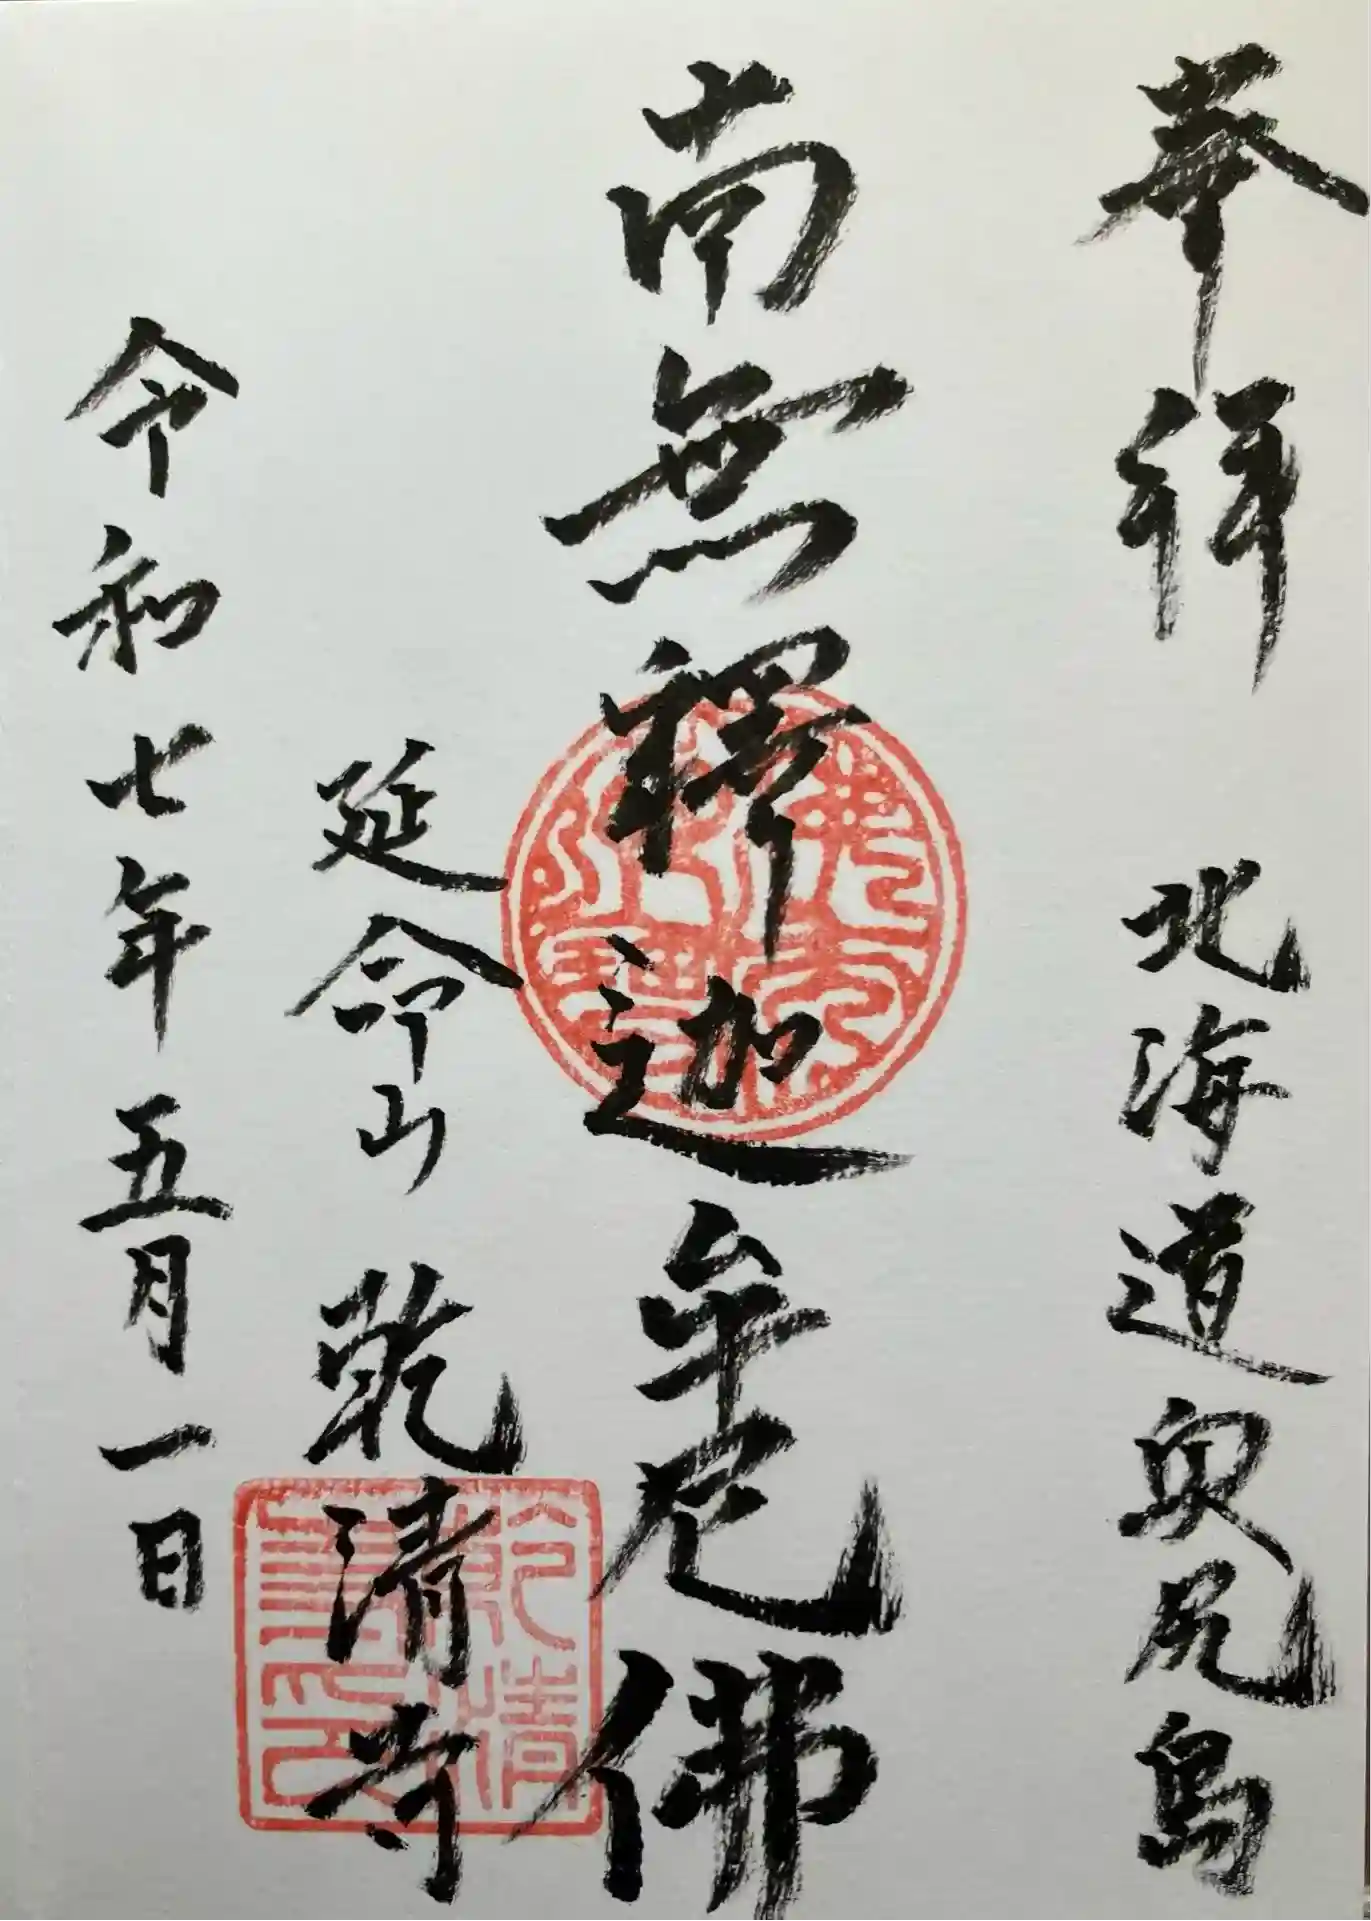 奉拝 北海道奥尻島
南無釋迦牟尼佛
延命山 乾清寺
令和七年五月一日